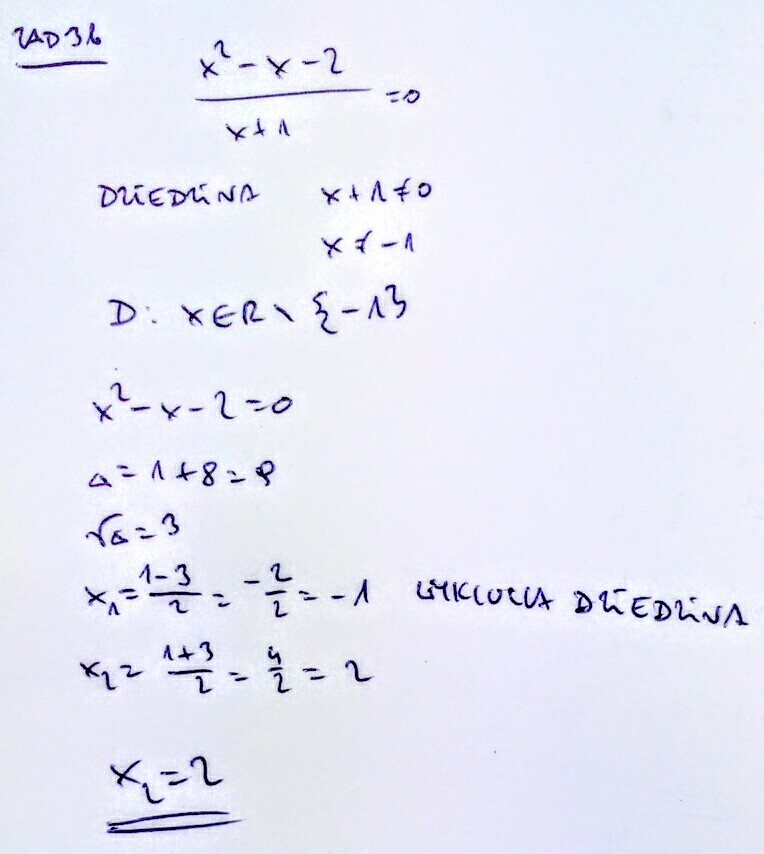 ZAD 3b
x² - x - 2
x + 1
= 0
DZIEDZINA x + 1 ≠ 0
x ≠ -1
D: x ∈ R \ {-1}
x² - x - 2 = 0
Δ = 1 + 8 = 9
√Δ = 3
x₁ = (1-3)/2 = -2/2 = -1 WYKLUCZA DZIEDZINA
x₂ = (1+3)/2 = 4/2 = 2
x₂ = 2